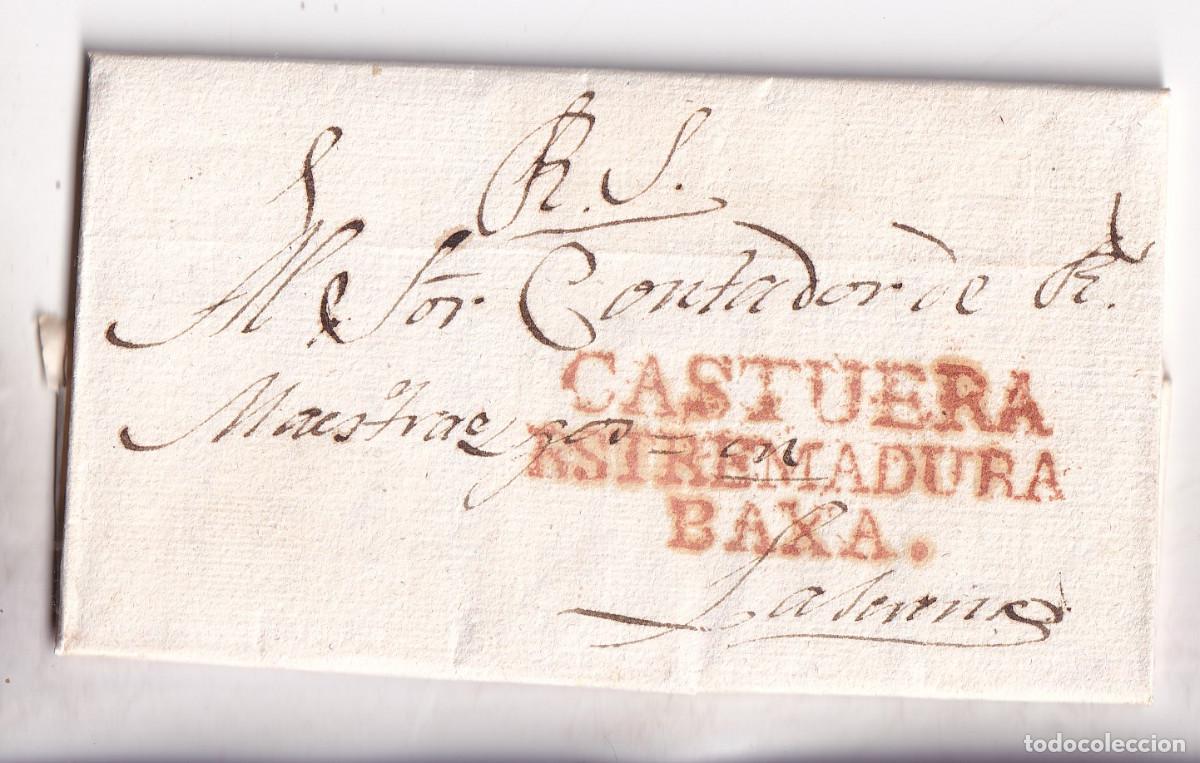 R. S.
Al Sor Contador de R.
CASTUERA
Maestrazgos = en
ESTREMADURA
BAXA.
La Serena
todocoleccion